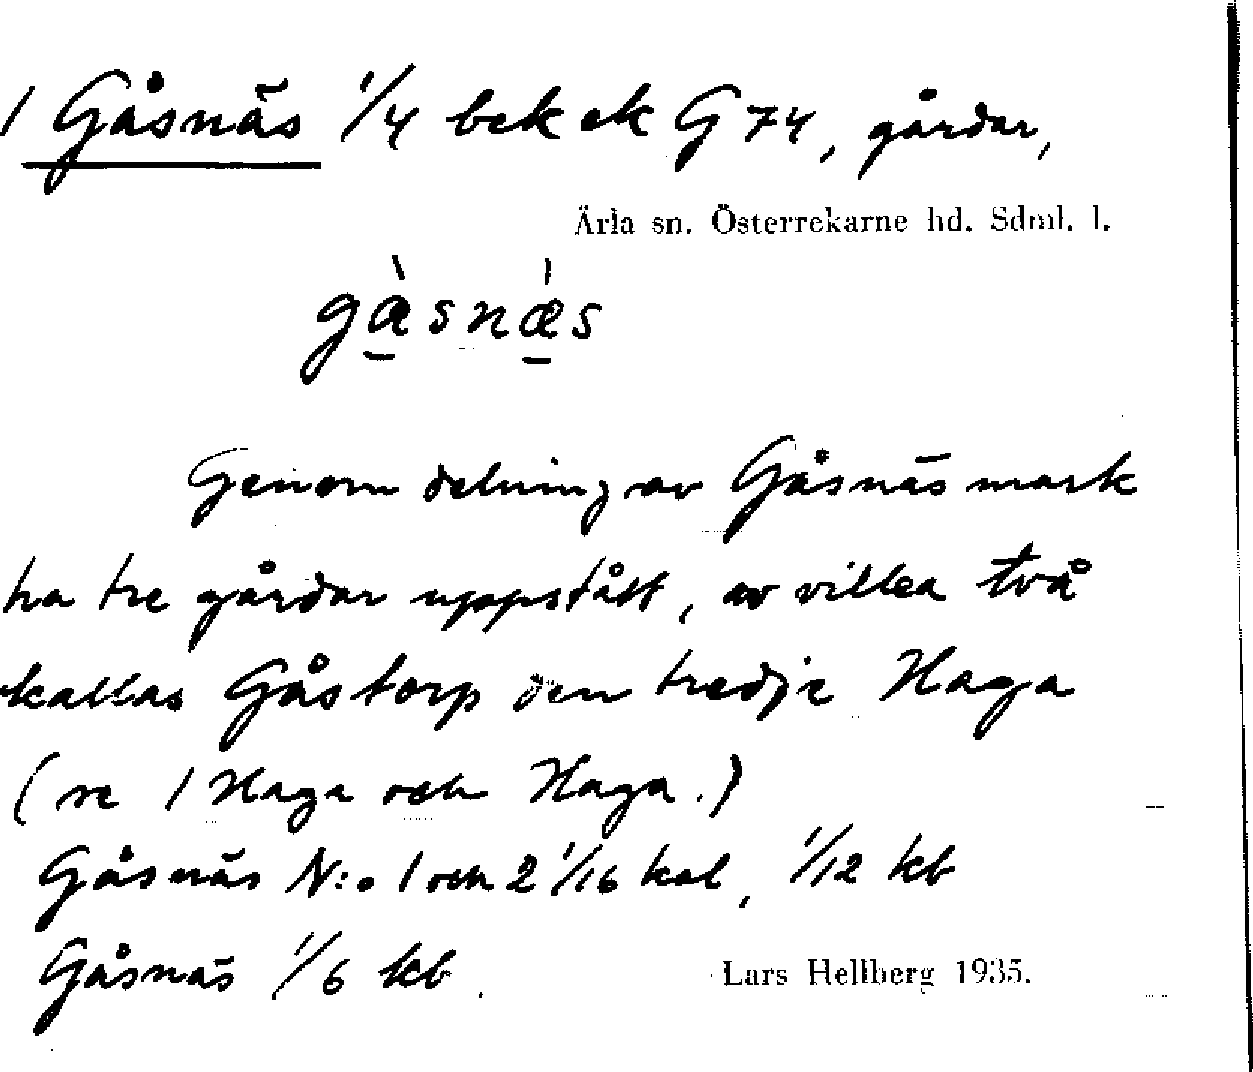 1 Gåsnäs 1/4 bek ek G 74, gårdar,
Ärla sn. Österrekarne hd. Sdml. l.
gàsnǽs
Genom delning av Gåsnäs mark
ha tre gårdar uppstått, av vilka två
kallas Gåstorp den tredje Haga
(se 1 Haga och Haga.)
Gåsnäs N:o 1 och 2 1/16 kal, 1/12 kb
Gåsnäs 1/6 kb.
Lars Hellberg 1935.